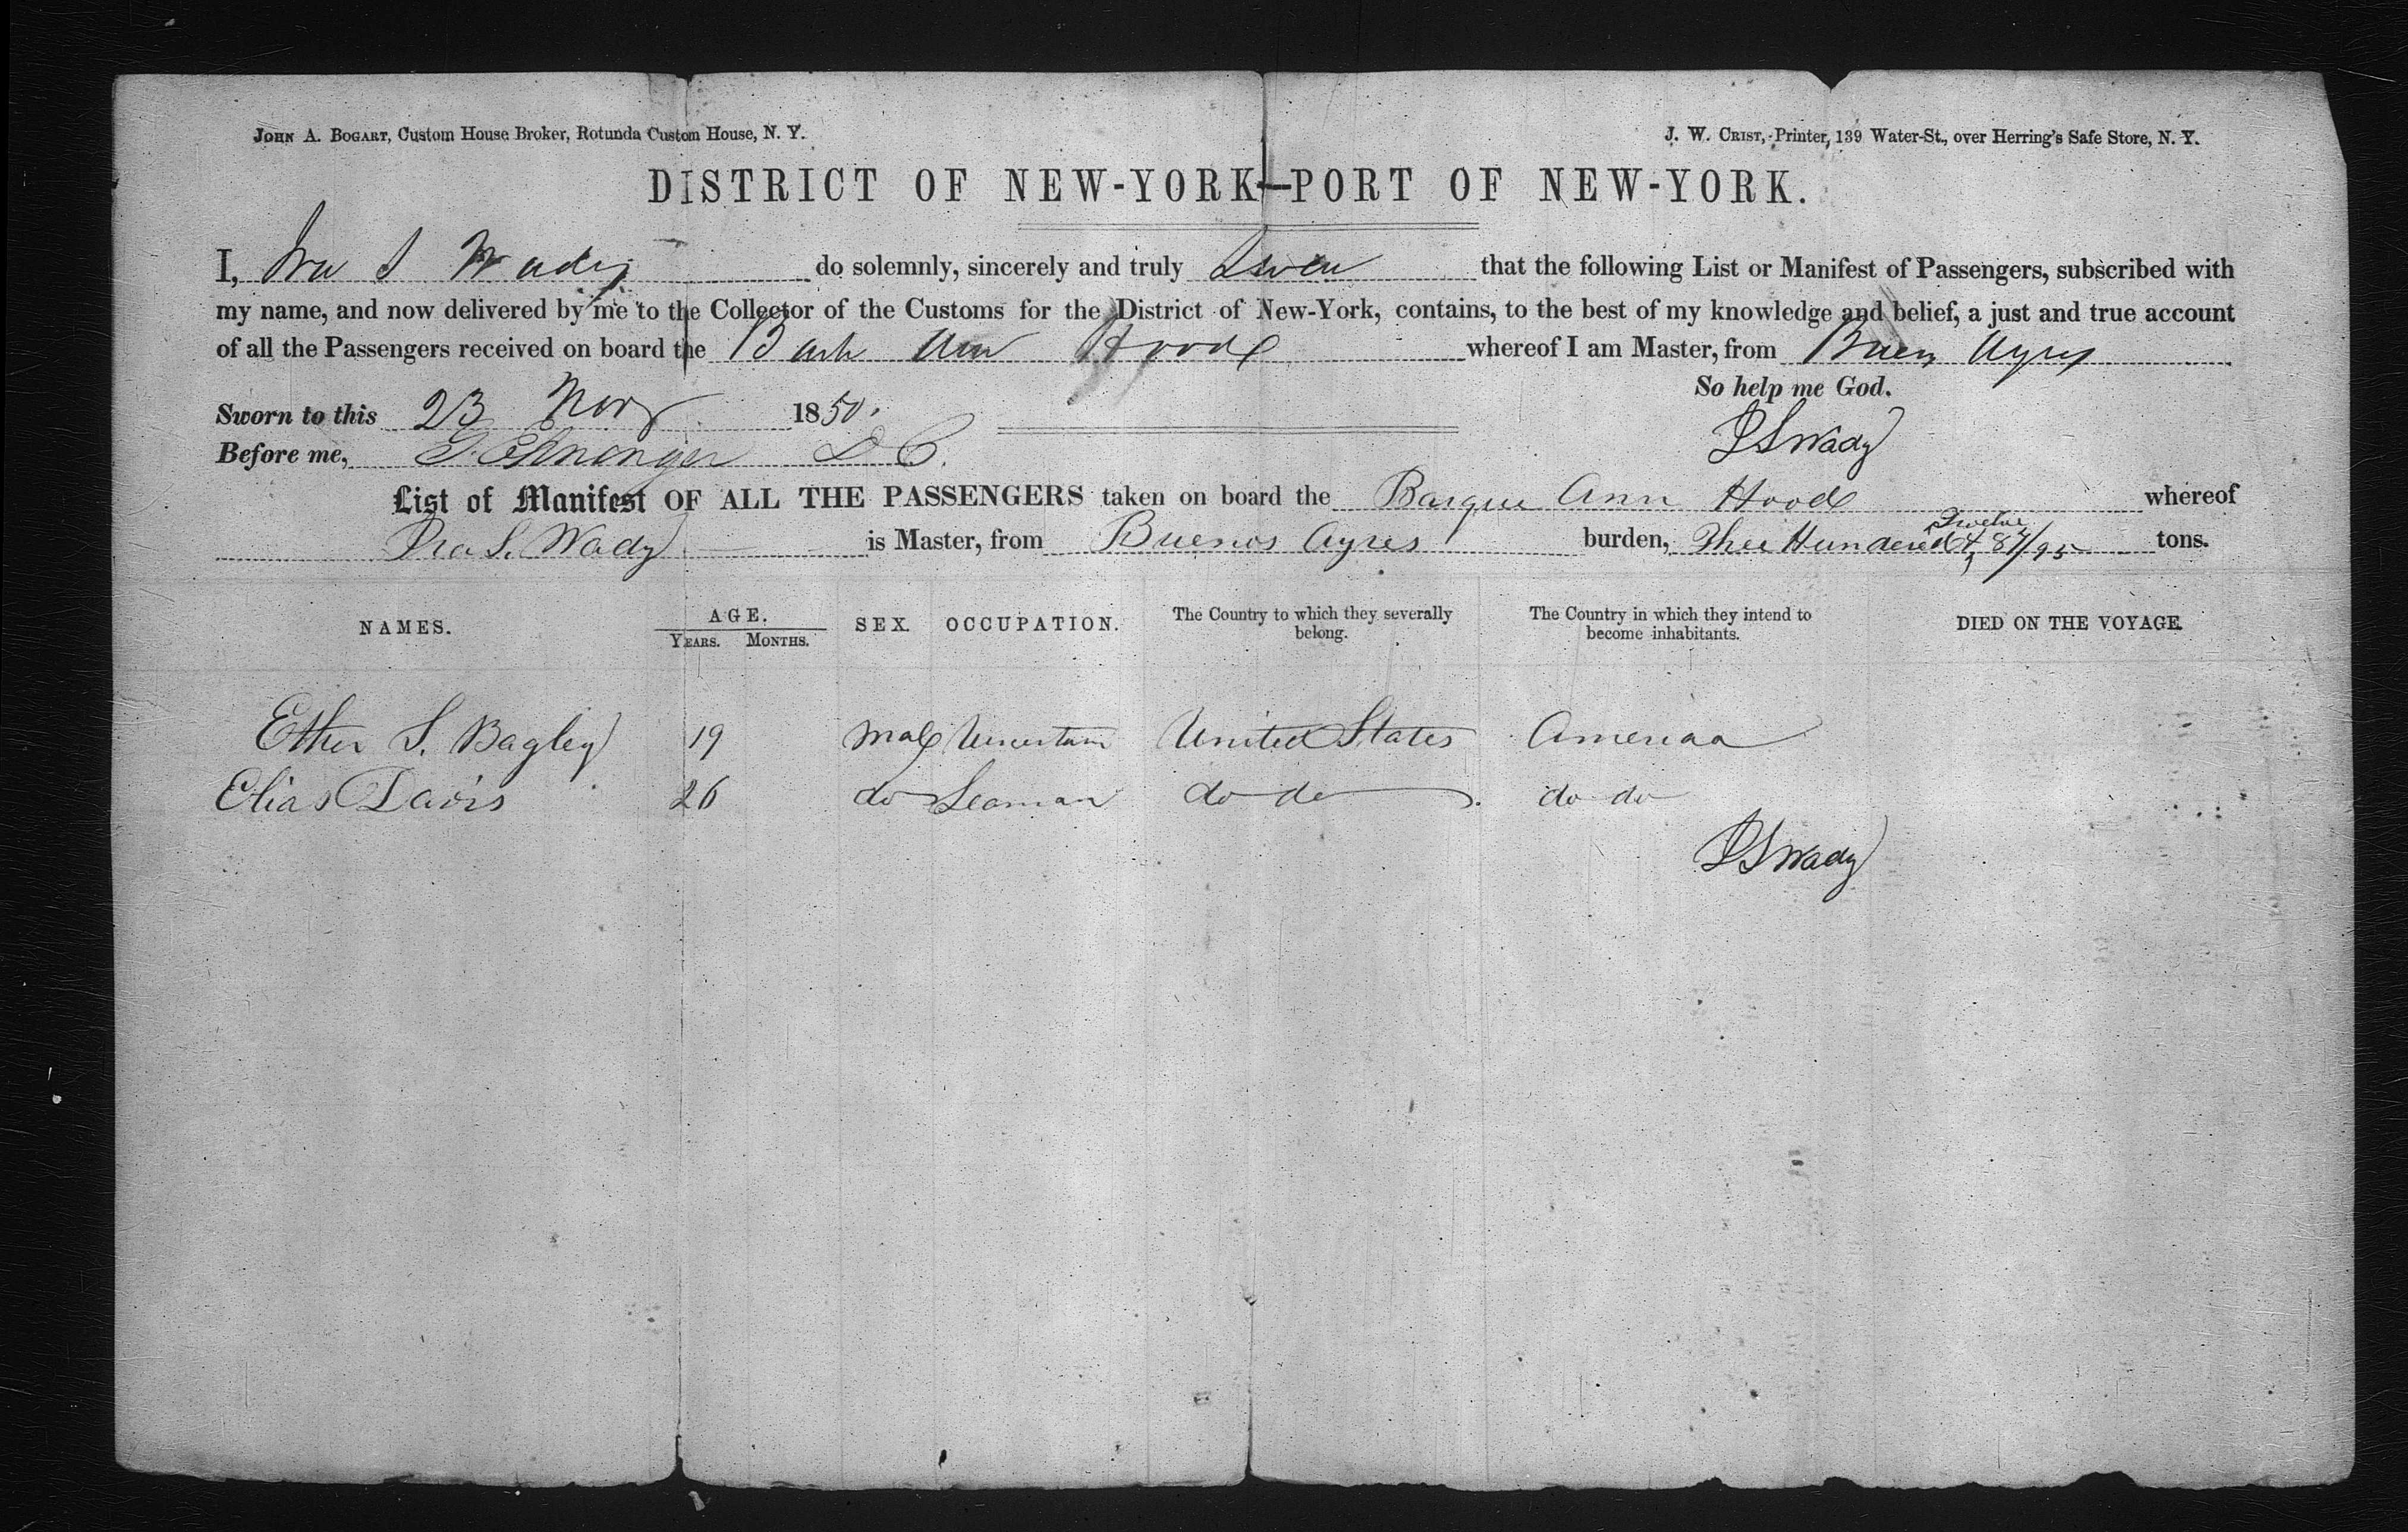 JOHN A. BOGART, Custom House Broker, Rotunda Custom House, N. Y.
J. W. CRIST, Printer, 139 Water-St., over Herring's Safe Store, N. Y.
DISTRICT OF NEW-YORK—PORT OF NEW-YORK.
I, Ira S Wady do solemnly, sincerely and truly Swear that the following List or Manifest of Passengers, subscribed with
my name, and now delivered by me to the Collector of the Customs for the District of New-York, contains, to the best of my knowledge and belief, a just and true account
of all the Passengers received on board the Bark Ann Hood whereof I am Master, from Buens Ayres
So help me God.
Sworn to this 23 Nov 1850.
I S Wady
Before me, D C.
List of Manifest OF ALL THE PASSENGERS taken on board the Barque Ann Hood whereof
Ira S. Wady is Master, from Buenos Ayres burden, Three Hundered Twelve & 87/95 tons.
NAMES. AGE. YEARS. MONTHS. SEX. OCCUPATION. The Country to which they severally belong. The Country in which they intend to become inhabitants. DIED ON THE VOYAGE.
Ether S. Bagley 19 Male Uncertain United States America
Elias Davis 26 do Seaman do do do do
I S Wady